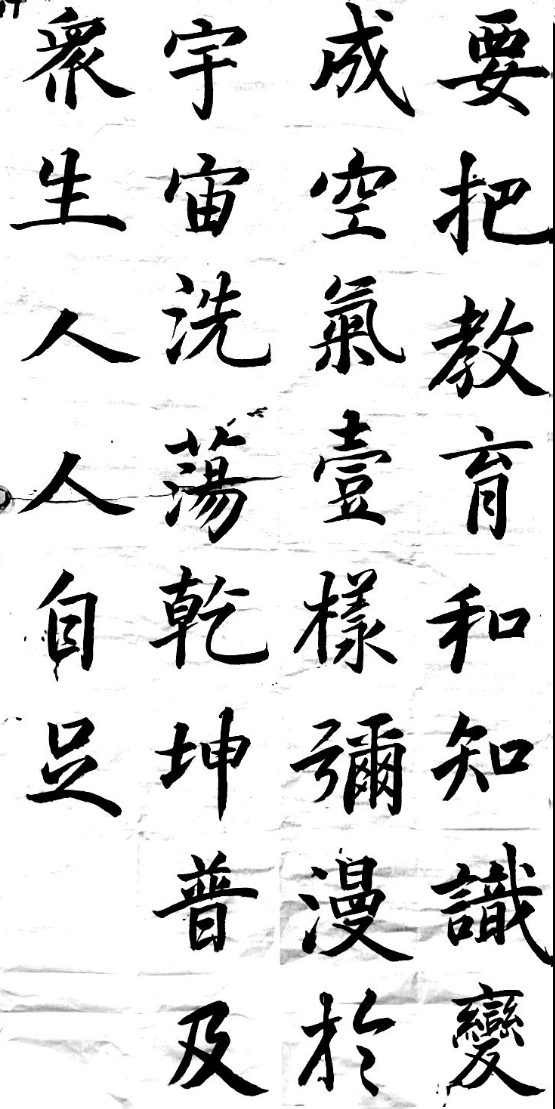 要把教育和知識變
成空氣壹樣彌漫於
宇宙洗蕩乾坤普及
眾生人人自足